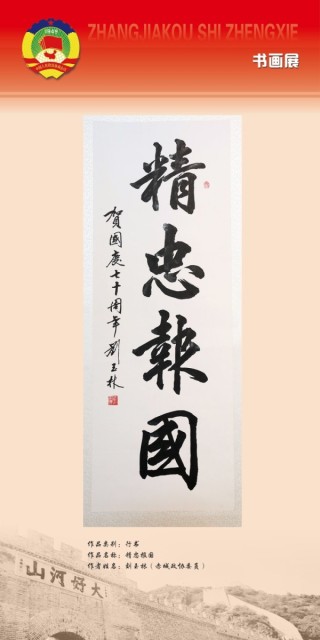 1949
ZHANGJIAKOU SHI ZHENGXIE
书画展
精忠報國
賀國慶七十周年 劉玉林
作品类别：行书
作品名称：精忠报国
作者姓名：刘玉林（赤城政协委员）
大好河山